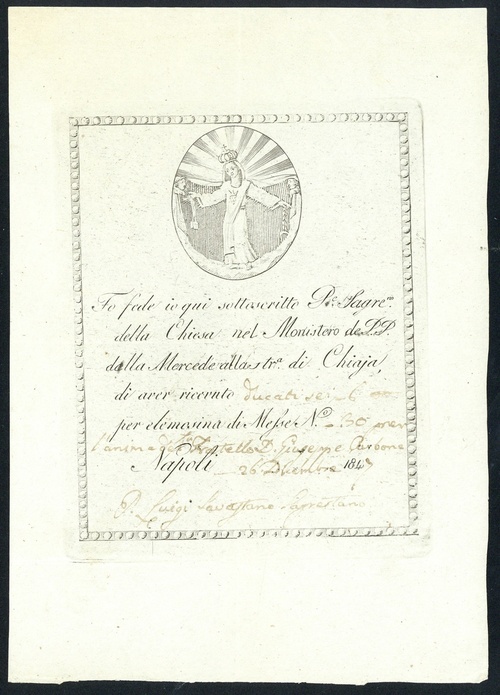 Fo fede io qui sottoscritto P.e Sagre.no
della Chiesa nel Monistero de P.P.
della Mercede alla str.a di Chiaja,
di aver ricevuto ducati sei 6
per elemosina di Messe N.o 30 per
l'anima del Fratello D. Giuseppe Cardone
Napoli 26 Dicembre 1847
P. Luigi Savastano Sagrestano